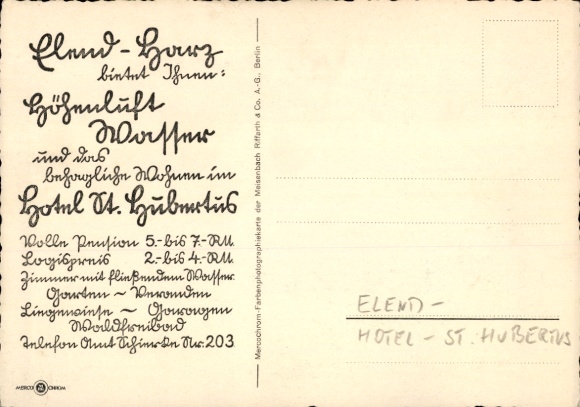 Elend - Harz
bietet Ihnen:
Höhenluft
Wasser
und das
behagliche Wohnen im
Hotel St. Hubertus
Volle Pension 5.- bis 7.- RM.
Logispreis 2.- bis 4.- RM.
Zimmer mit fließendem Wasser.
Garten ~ Veranden
Liegewiese ~ Garagen
Waldfreibad
Telefon Amt Schierke Nr. 203
MERCO CHROM
Mercochrom-Farbenphotographiekarte der Meisenbach Riffarth & Co. A.-G., Berlin
ELEND -
HOTEL - ST. HUBERTUS